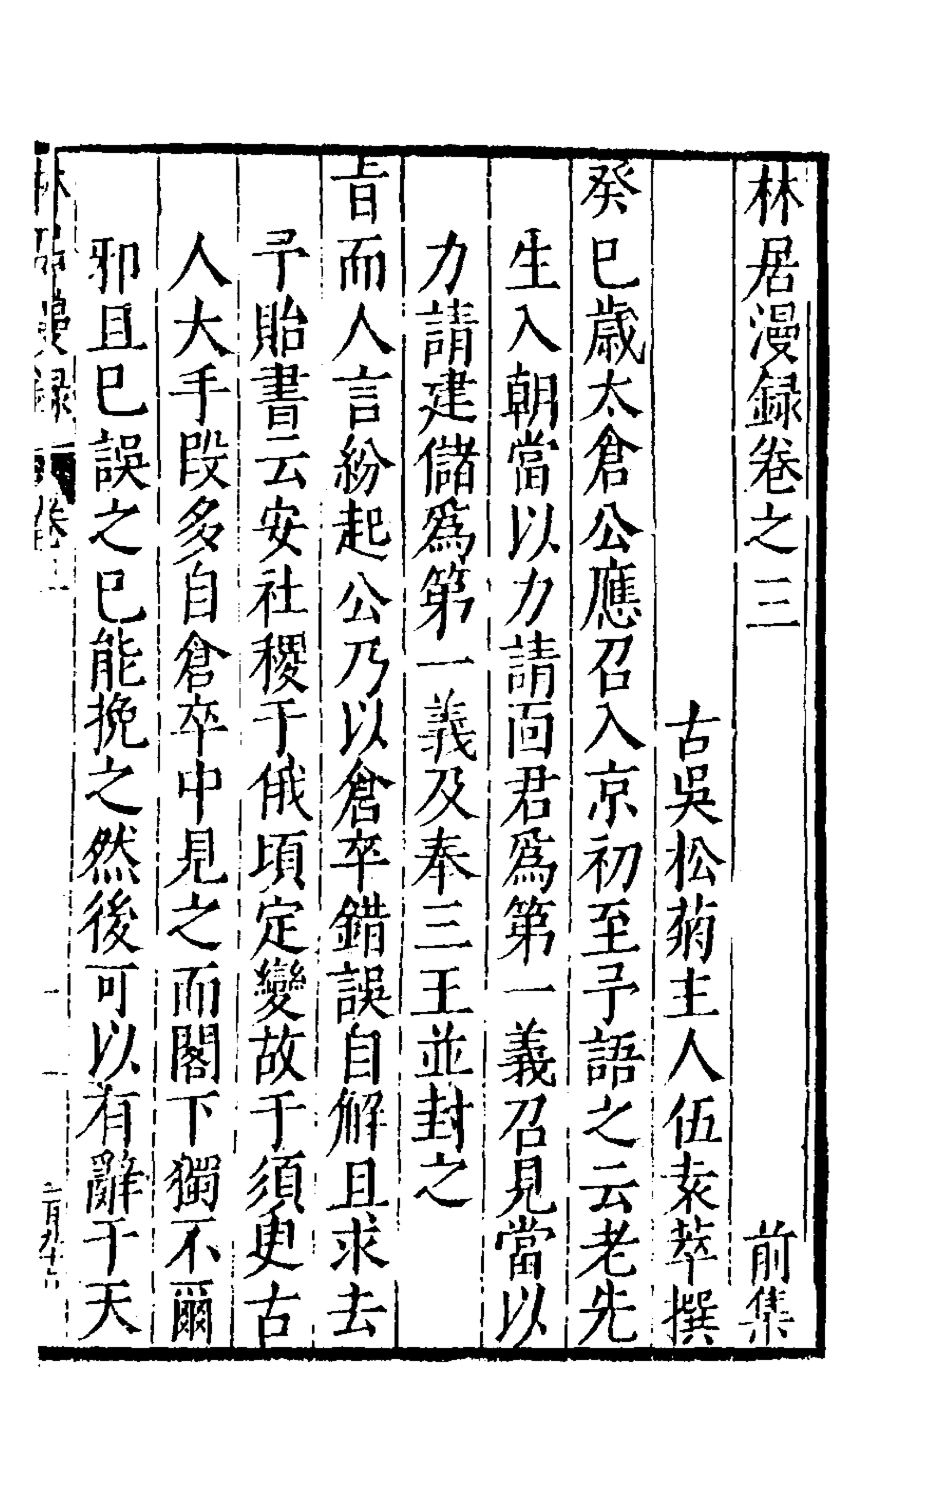 林居漫録卷之三 前集
古吳松菊主人伍袁萃撰
癸巳歲太倉公應召入京初至予語之云老先
生入朝當以力請面君爲第一義召見當以
力請建儲爲第一義及奉三王並封之
旨而人言紛起公乃以倉卒錯誤自解且求去
予貽書云安社稷于俄頃定變故于須臾古
人大手段多自倉卒中見之而閣下獨不爾
邪且已誤之已能挽之然後可以有辭于天
林居漫録 卷三